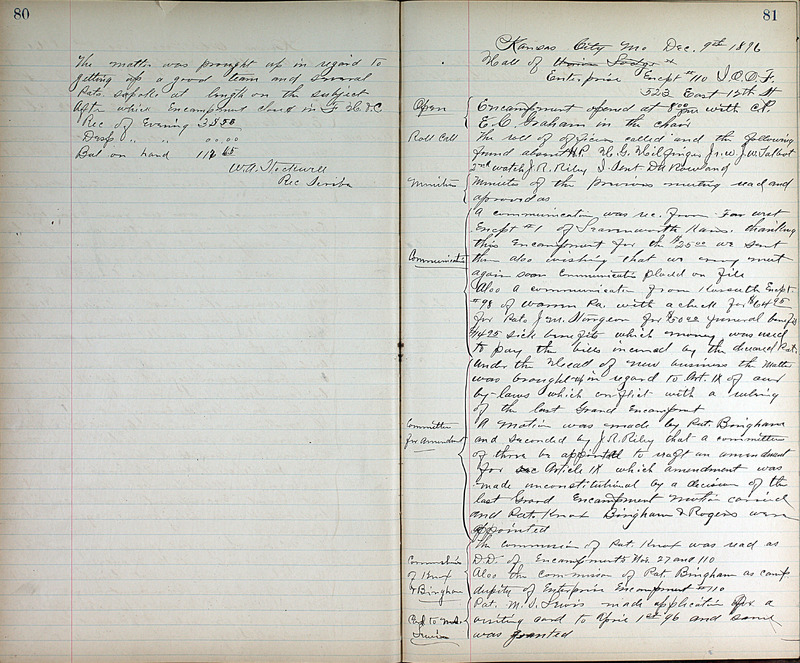 80
The matter was brought up in regard to
getting up a good team and several
Pats spoke at length on the subject
After which Encampment closed in F H & C
Rec of Evening 38.50
Desp " " 00.00
Bal on hand 65
W.A. Stockwell
Rec Scribe
81
Kansas City Mo Dec. 9th 1896
Hall of Union Lodge
Enterprise Encpt #110 I.O.O.F.
323 East 12th St
Open
Encampment opened at 8 00 pm with C.P.
E. C. Graham in the chair
Roll Call
The roll of officers called and the following
found absent H.P. H. G. Hilfinger Jr. W. J. W. Talbot
2nd watch J. R. Riley I. Sent D. H. Rowland
Minutes
Minutes of the previous meeting read and
approved as
A communication was rec. from Far west
Encpt #1 of Leavenworth Kans. thanking
this Encampment for the $25.00 we sent
Communicatio
them also wishing that we may meet
again soon Communication placed on file
Also a communication from Kossuth Encpt
#98 of Warren Pa. with a check for $64.95
for Pats J. M. for $50.00 funeral benefits
$14.95 sick benefits which money was used
to pay the bills incurred by the deceased Pat.
Under the Head of new business the Matter
was brought up in regard to Art. IX of our
by-laws which conflict with a ruling
of the last Grand Encampmt
Committee
for Amendmt
A Motion was made by Pat. Bingham
and seconded by J. R. Riley that a committee
of three be appointed to draft an amendment
for Article IX which amendment was
made unconstitutional by a decision of the
last Grand Encampment Motion carried
and Pat. Knox Bingham & Rogers were
appointed
Commission
of Knox
& Bingham
The commission of Pat. Knox was read as
D.D. of Encampments Nos. 27 and 110
Also the commission of Pat. Bingham as camp
deputy of Enterprise Encampment #110
to M.S.
Irwin
Pat. M. S. Irwin made application for a
visiting card to Apr 1st 96 and same
was granted